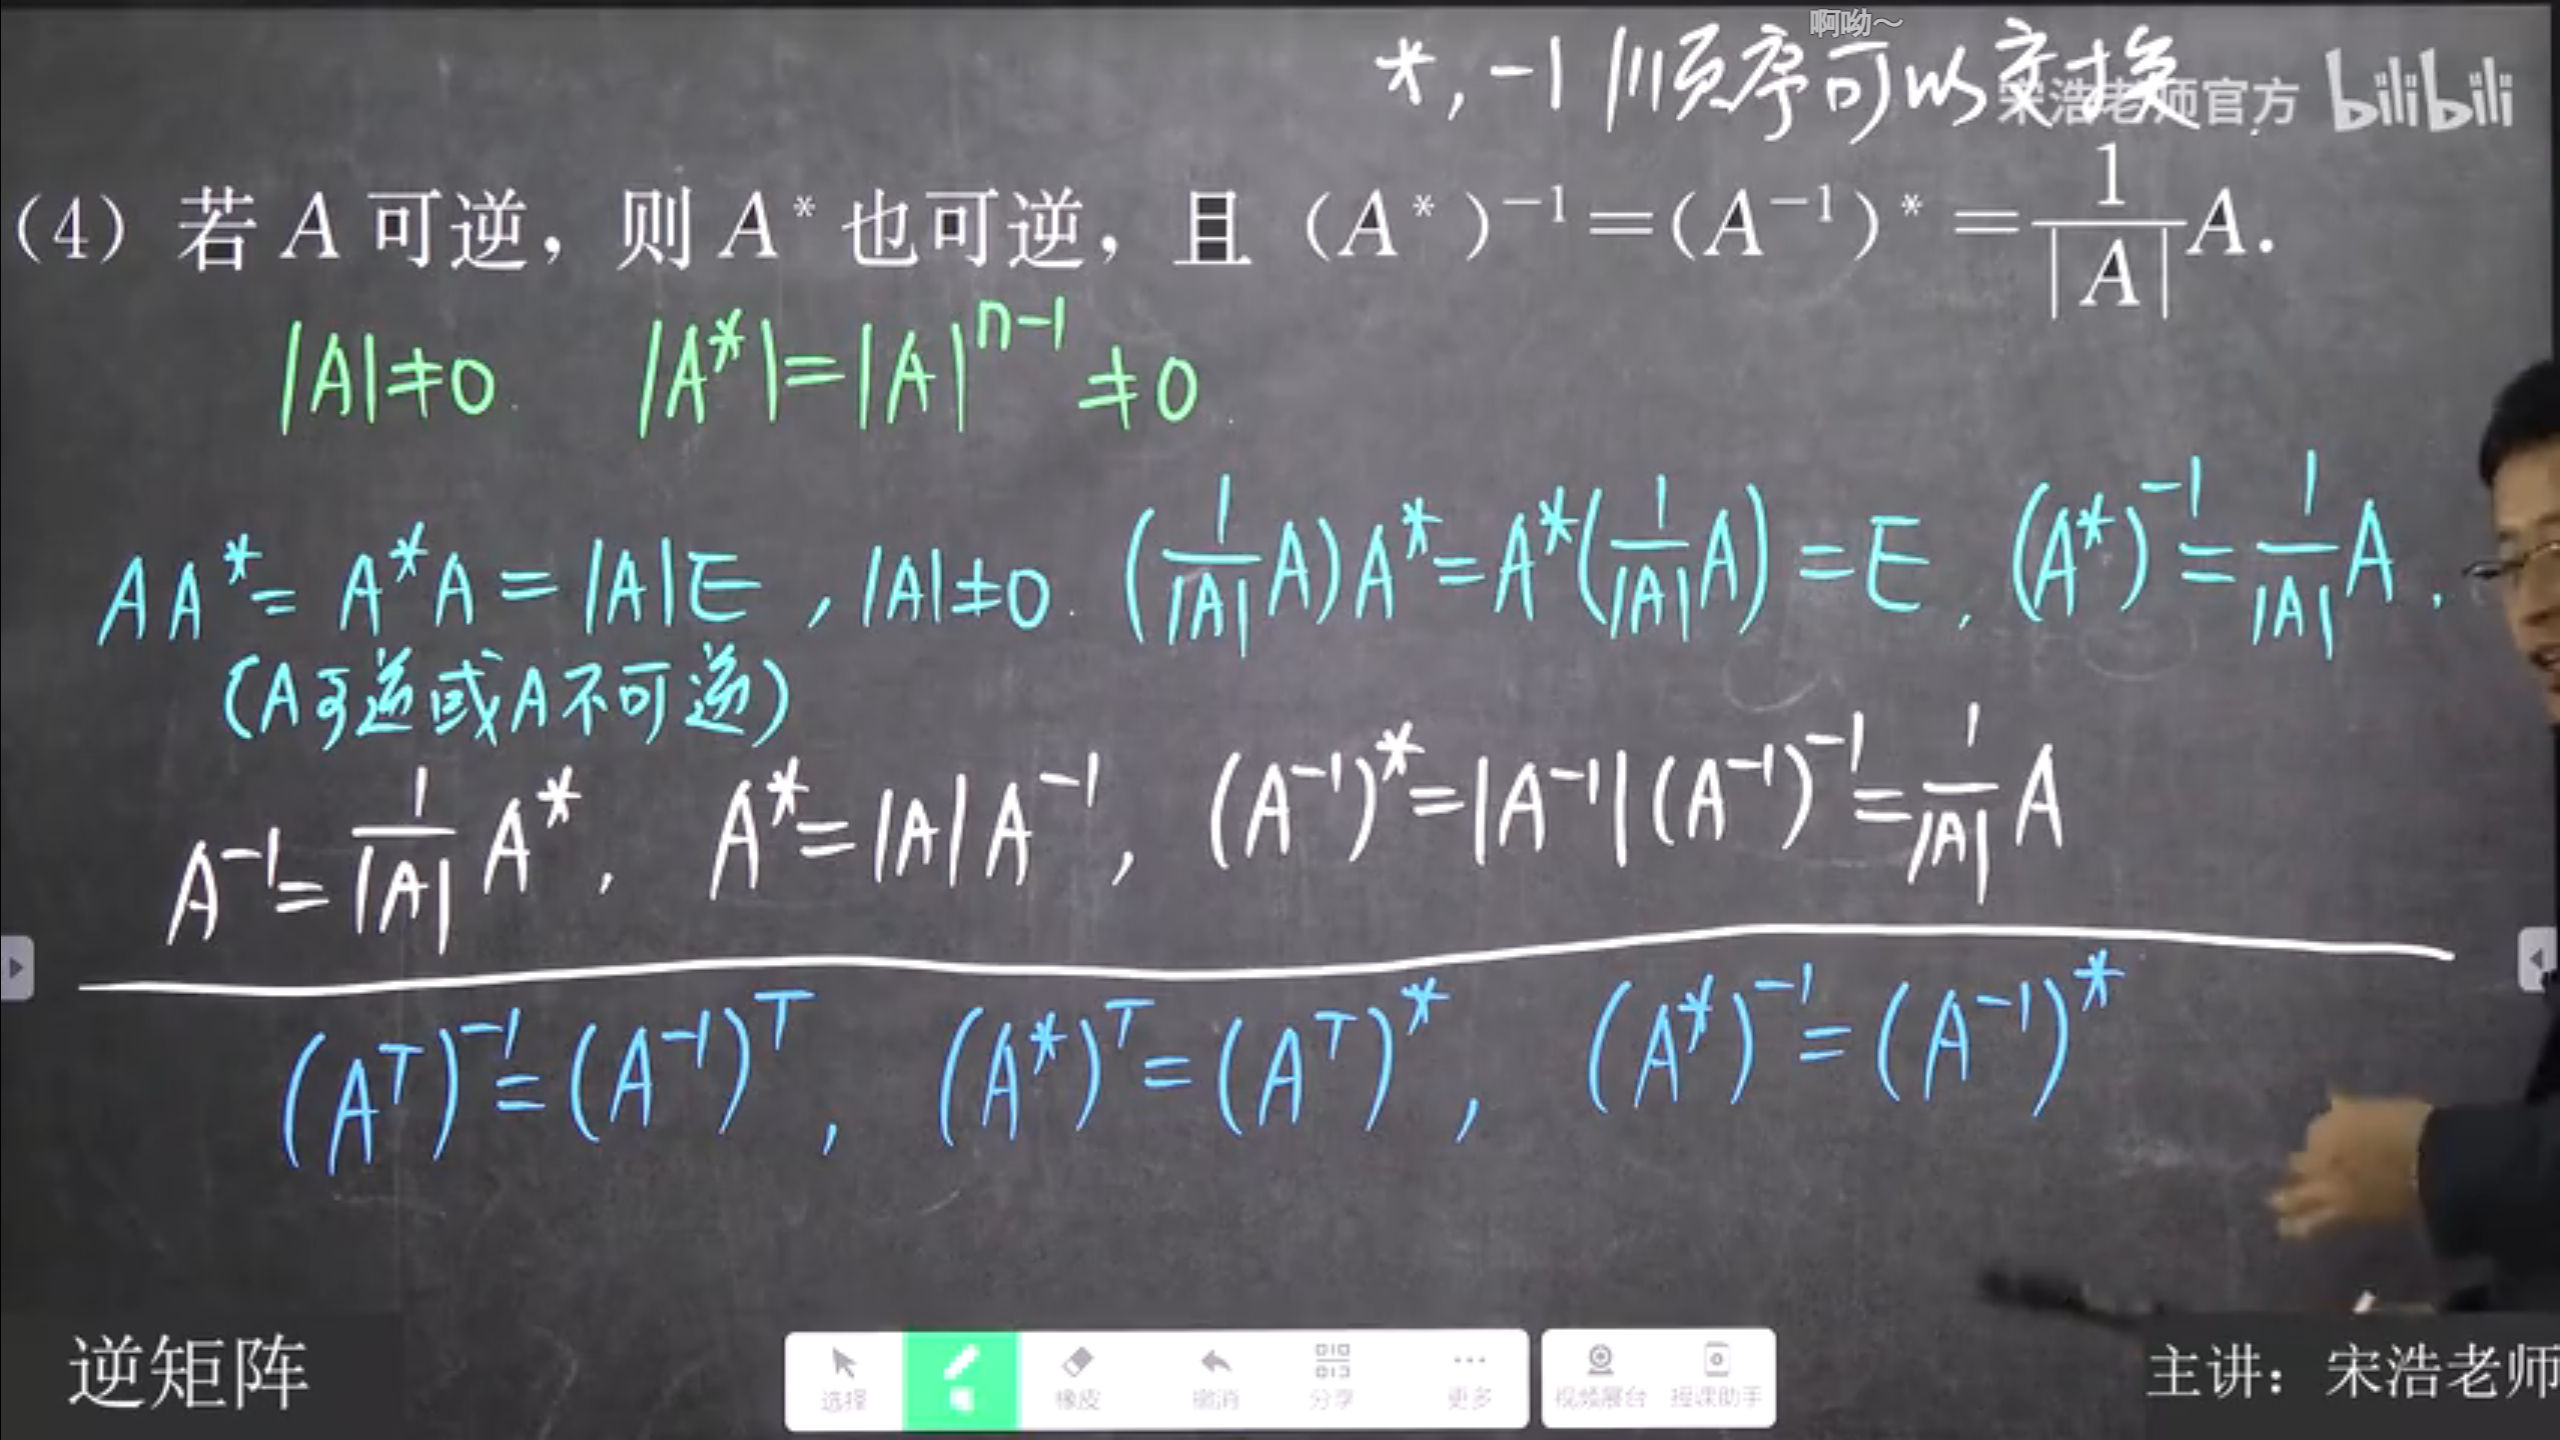 啊呦～
*, -1 顺序可以交换
宋浩老师官方 bilibili
(4) 若 A 可逆，则 A* 也可逆，且 (A*)⁻¹=(A⁻¹)*=1/|A| A.
|A|≠0 |A*|=|A|ⁿ⁻¹≠0
AA*=A*A=|A|E, |A|≠0. (1/|A| A)A*=A*(1/|A| A)=E, (A*)⁻¹=1/|A| A.
(A可逆或A不可逆)
A⁻¹=1/|A| A*, A*=|A|A⁻¹, (A⁻¹)*=|A⁻¹|(A⁻¹)⁻¹=1/|A| A
(Aᵀ)⁻¹=(A⁻¹)ᵀ, (A*)ᵀ=(Aᵀ)*, (A*)⁻¹=(A⁻¹)*
逆矩阵
选择 橡皮 撤消 分享 更多 视频展台 授课助手
主讲：宋浩老师